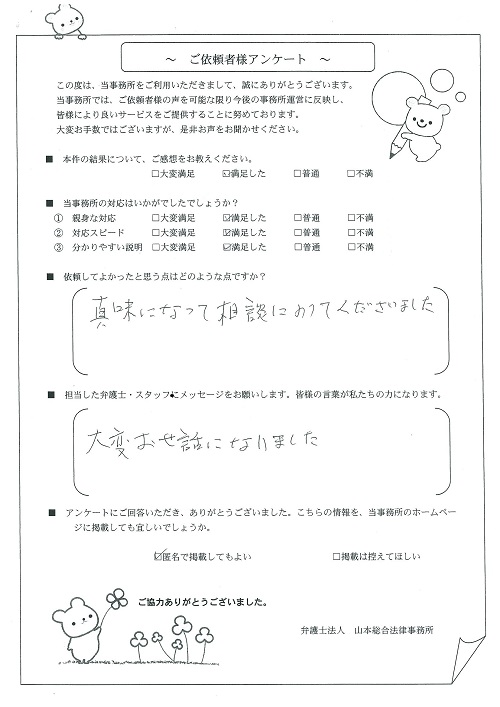 ～ ご依頼者様アンケート ～
この度は、当事務所をご利用いただきまして、誠にありがとうございます。
当事務所では、ご依頼者様の声を可能な限り今後の事務所運営に反映し、
皆様により良いサービスをご提供することに努めております。
大変お手数ではございますが、是非お声をお聞かせください。
■ 本件の結果について、ご感想をお教えください。
□大変満足 ☑満足した □普通 □不満
■ 当事務所の対応はいかがでしたでしょうか？
① 親身な対応 □大変満足 ☑満足した □普通 □不満
② 対応スピード □大変満足 ☑満足した □普通 □不満
③ 分かりやすい説明 □大変満足 ☑満足した □普通 □不満
■ 依頼してよかったと思う点はどのような点ですか？
真味になって相談にのってくださいました
■ 担当した弁護士・スタッフにメッセージをお願いします。皆様の言葉が私たちの力になります。
大変お世話になりました
■ アンケートにご回答いただき、ありがとうございました。こちらの情報を、当事務所のホームペー
ジに掲載しても宜しいでしょうか。
☑匿名で掲載してもよい □掲載は控えてほしい
ご協力ありがとうございました。
弁護士法人 山本総合法律事務所